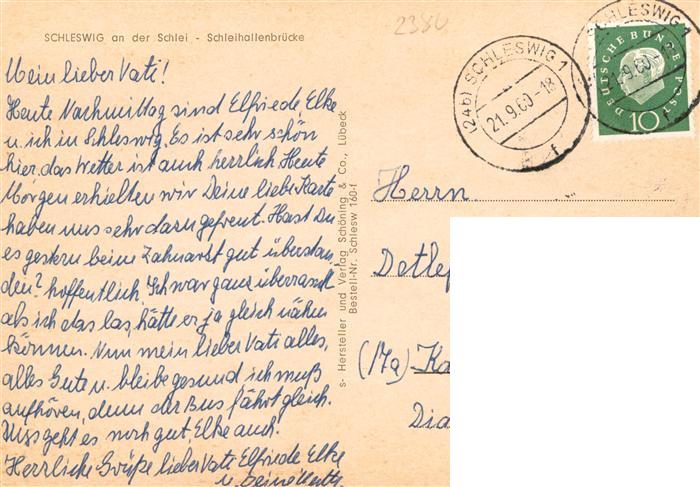 2380
SCHLESWIG an der Schlei - Schleihallenbrücke
(24b) SCHLESWIG 1
21.9.60.-18
f
SCHLESWIG 1
.9.60.-
f
DEUTSCHE BUNDESPOST
10
Mein lieber Vati!
Heute Nachmittag sind Elfriede Elke
u. ich in Schleswig. Es ist sehr schön
hier, das Wetter ist auch herrlich. Heute
Morgen erhielten wir Deine liebe Karte
haben uns sehr dazu gefreut. Hast Du
es gestern beim Zahnarzt gut überstan
den? hoffentlich. Ich war ganz überrascht
als ich das las, hätte er ja gleich nähen
können. Nun mein lieber Vati alles,
alles Gute u. bleibe gesund ich muß
aufhören, denn der Bus fährt gleich.
Uns geht es noch gut, Elke auch!
Herzliche Grüße lieber Vati Elfriede Elke
u. Deine
s- Hersteller und Verlag Schöning & Co., Lübeck
Bestell-Nr. Schlesw 160-f
Herrn
Detlef
(17a) Ka
Dia